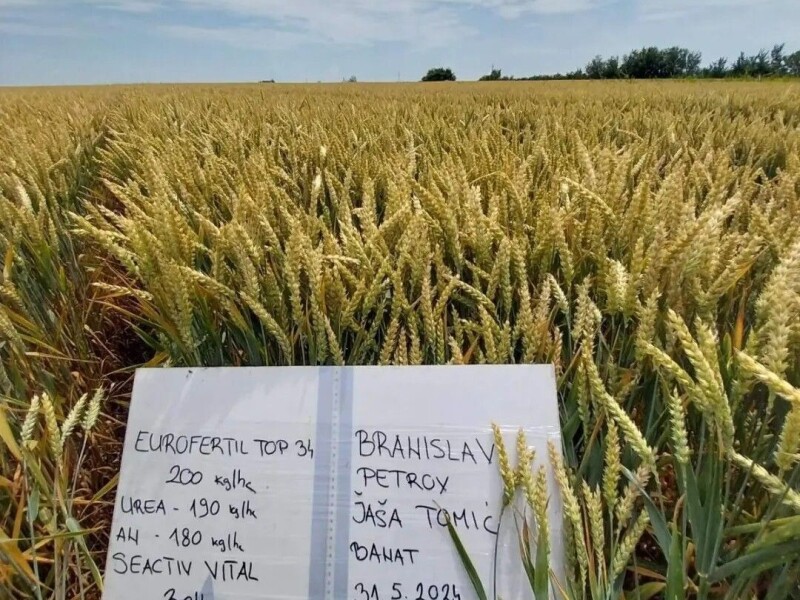 EUROFERTIL TOP 34
200 kg/ha
UREA - 190 kg/ha
AN - 180 kg/ha
SEACTIV VITAL
BRANISLAV
PETROV
JAŠA TOMIĆ
BANAT
31.5.2024